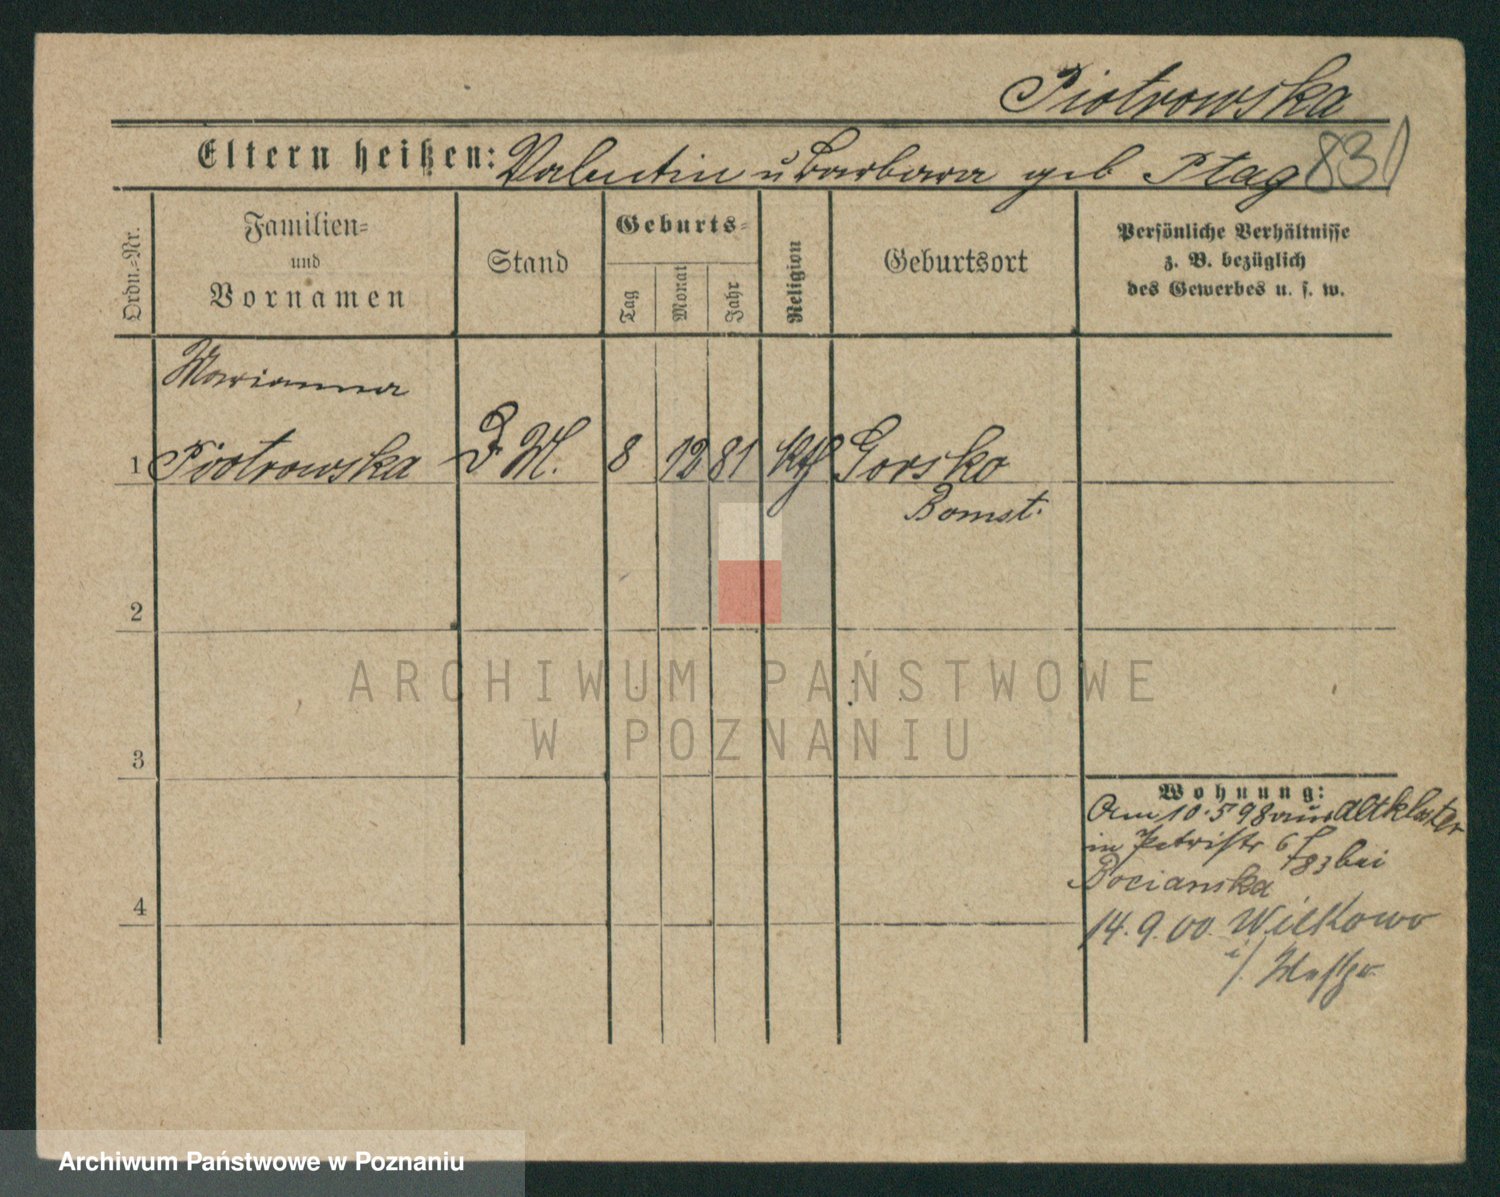 Piotrowska
Eltern heißen: Valentin u Barbara geb Ptag 83
Ordn.-Nr.
Familien-
und
Vornamen
Stand
Geburts-
Tag
Monat
Jahr
Religion
Geburtsort
Persönliche Verhältnisse
z. B. bezüglich
des Gewerbes u. s. w.
Marianna
1 Piotrowska D. M. 8 12 81 kth Gorsko
Bomst.
2
ARCHIWUM PAŃSTWOWE
W POZNANIU
3
Wohnung:
Am 10.5 98 aus Altkloster
in Petristr 6 I
83 bei
Bocianska
4
14.9.00. Wilkowo
i/ Westpr
Archiwum Państwowe w Poznaniu